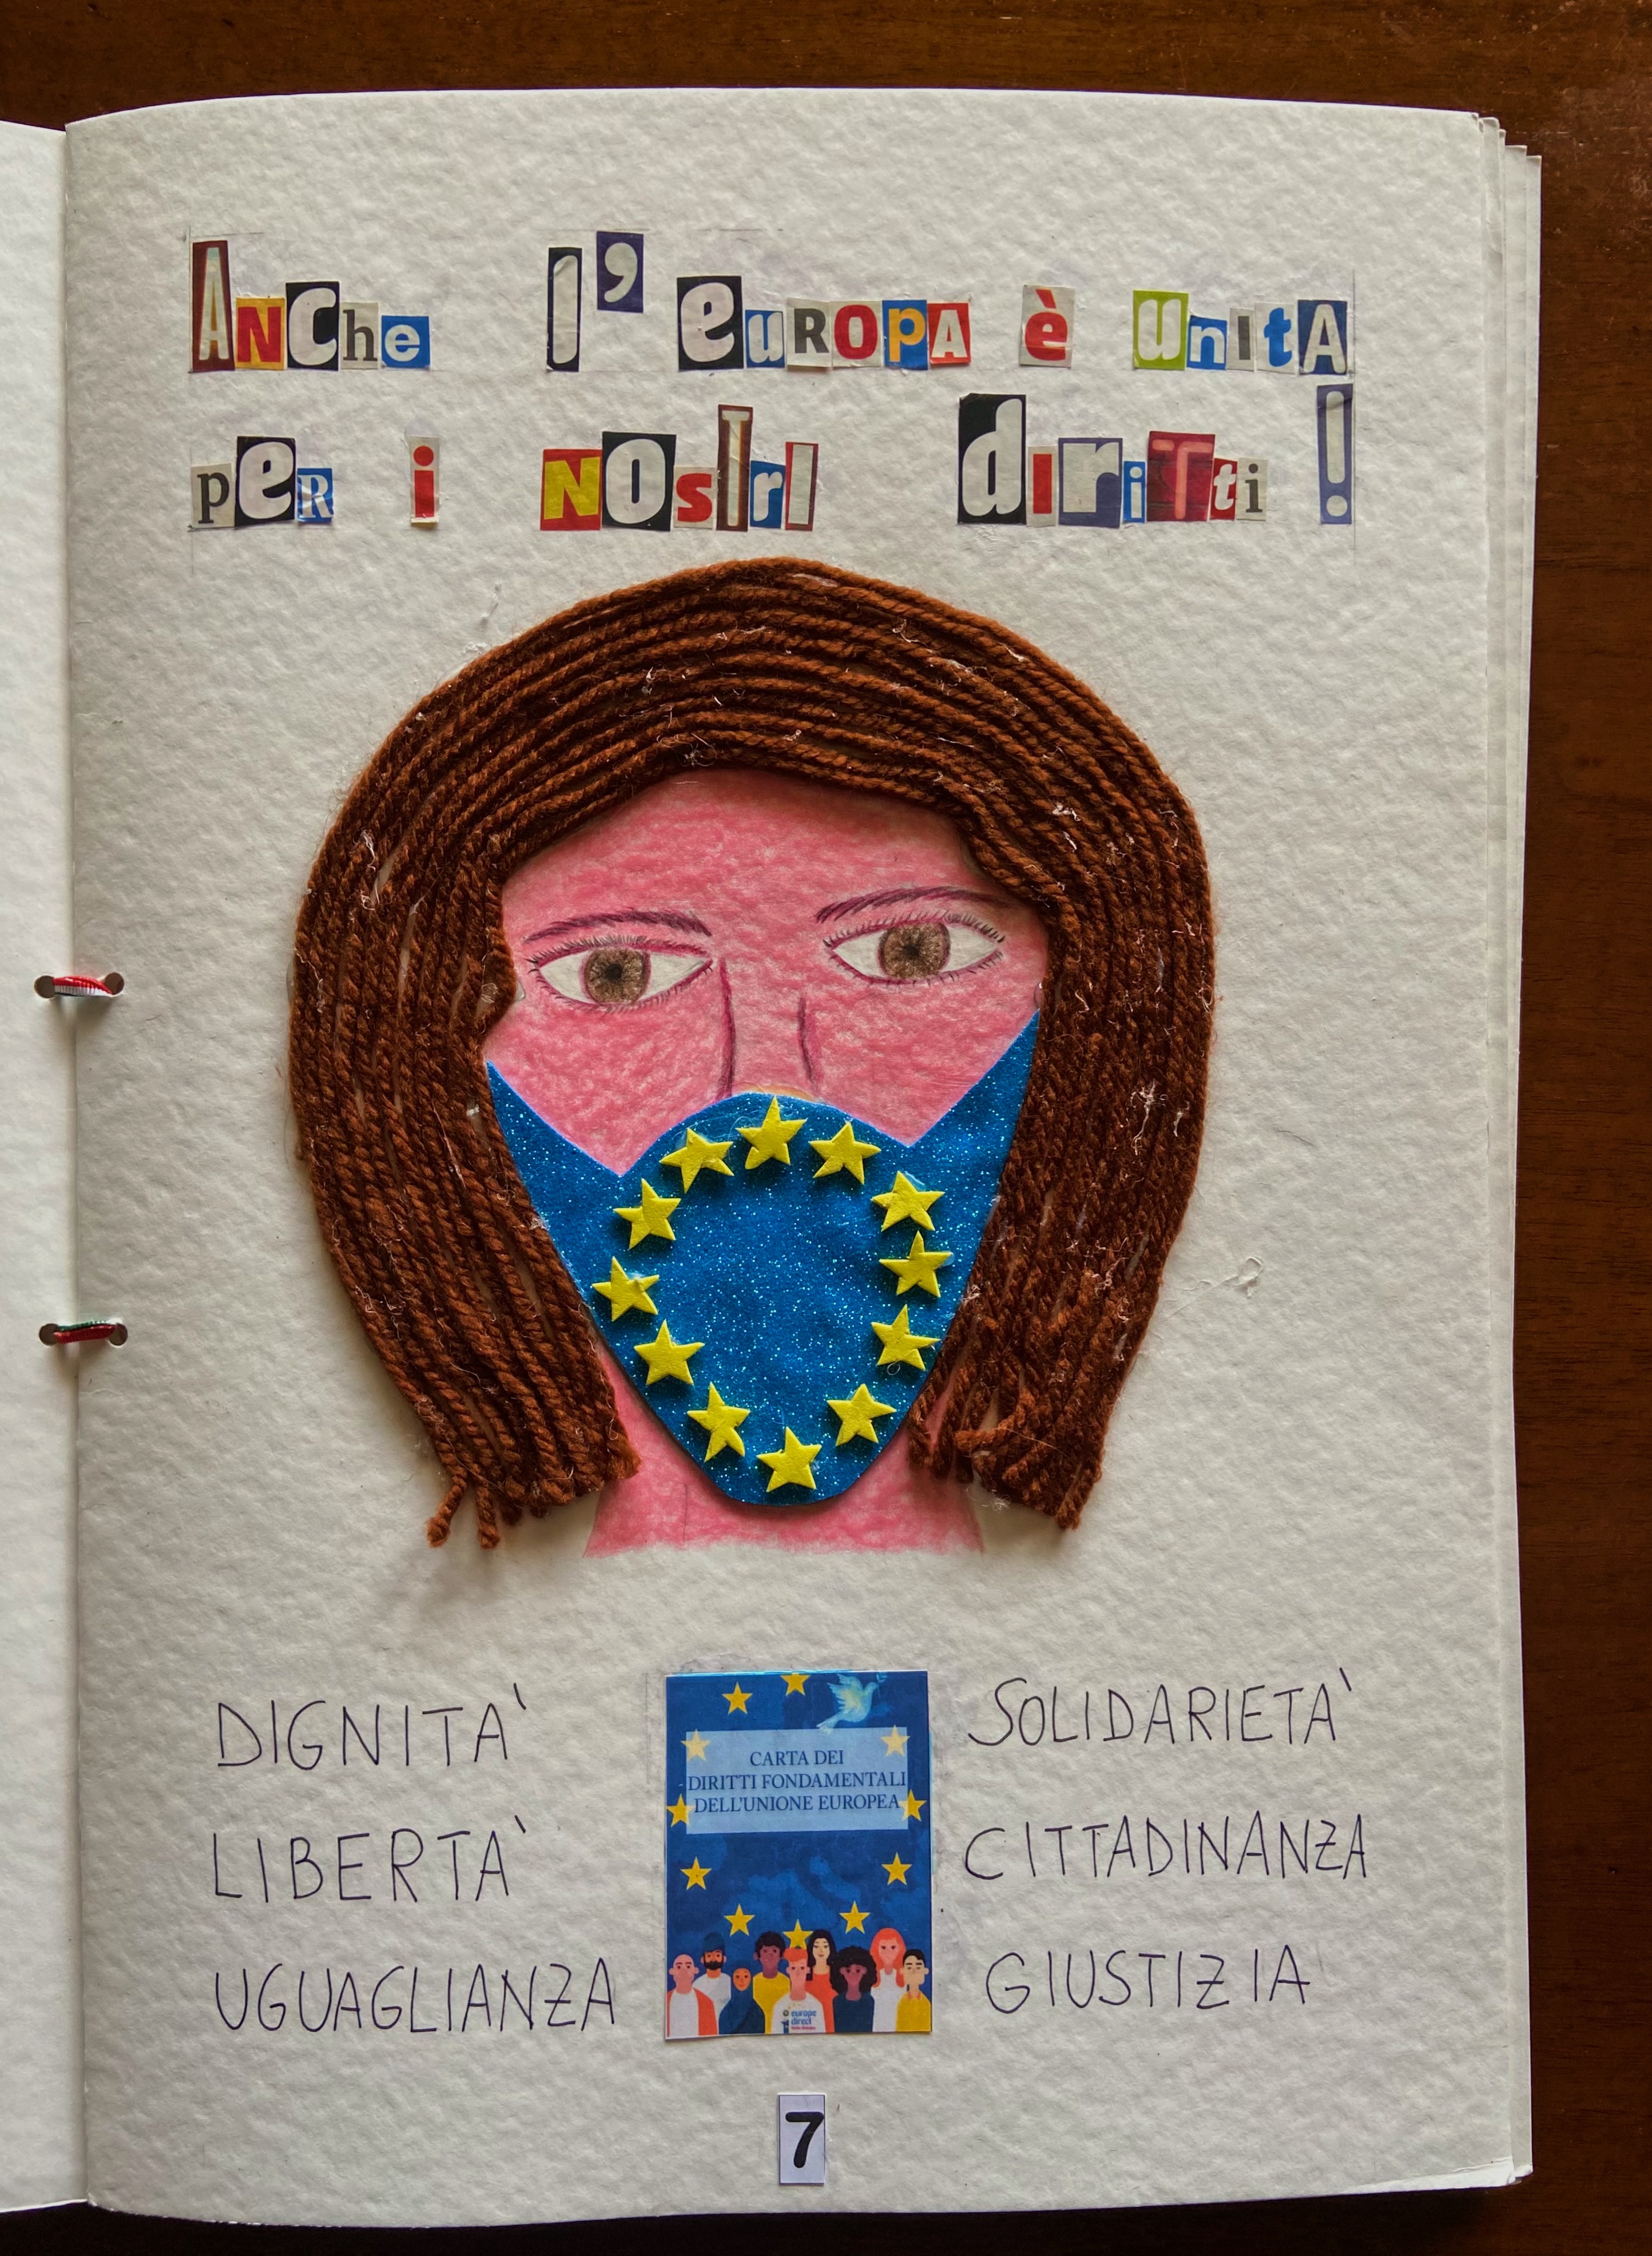 ANChe l'euROPA è unItA
peR i NOsTrI dIriTti!
DIGNITA'
LIBERTA'
UGUAGLIANZA
CARTA DEI
DIRITTI FONDAMENTALI
DELL'UNIONE EUROPEA
europe
direct
SOLIDARIETA'
CITTADINANZA
GIUSTIZIA
7